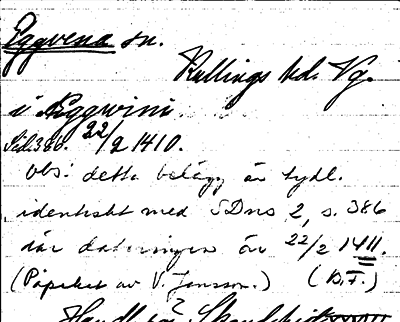 Eggvena sn.
Kullings hd. Vg.
i Æggwini
Sid. 386. 22/2 1410.
Obs! detta belägg är tydl.
identiskt med SDns 2, s. 386
där dateringen är 22/2 1411.
(Påpekat av V. Jansson.) (B.F.)